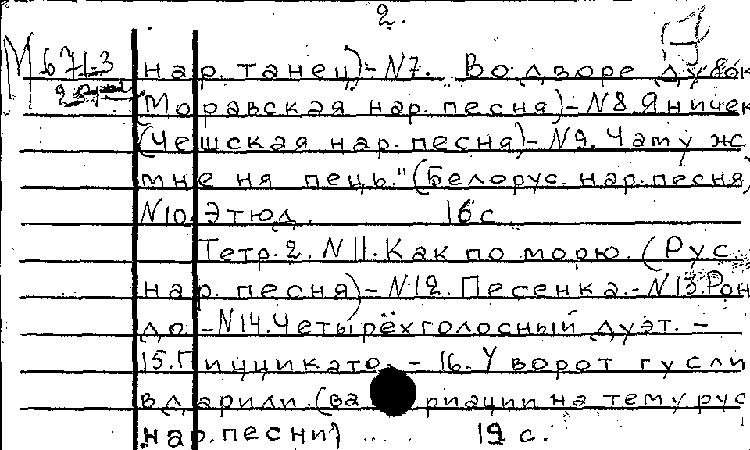 2.
М 671-3 нар. танец)- N7. Во дворе дубок
(Моравская нар. песня)- N8 Яничек
(Чешская нар. песня)- N9. Чаму ж
мне ня пець." (Белорус. нар. песня)
N10. Этюд. 16 с
Тетр. 2. N 11. Как по морю. (Рус.
нар. песня)- N12. Песенка.- N13. Рон-
до.- N14. Четырёхголосный дуэт. -
15. Пиццикато. - 16. У ворот гусли
вдарили. (вариации на тему рус
нар. песни) .... 19 с.